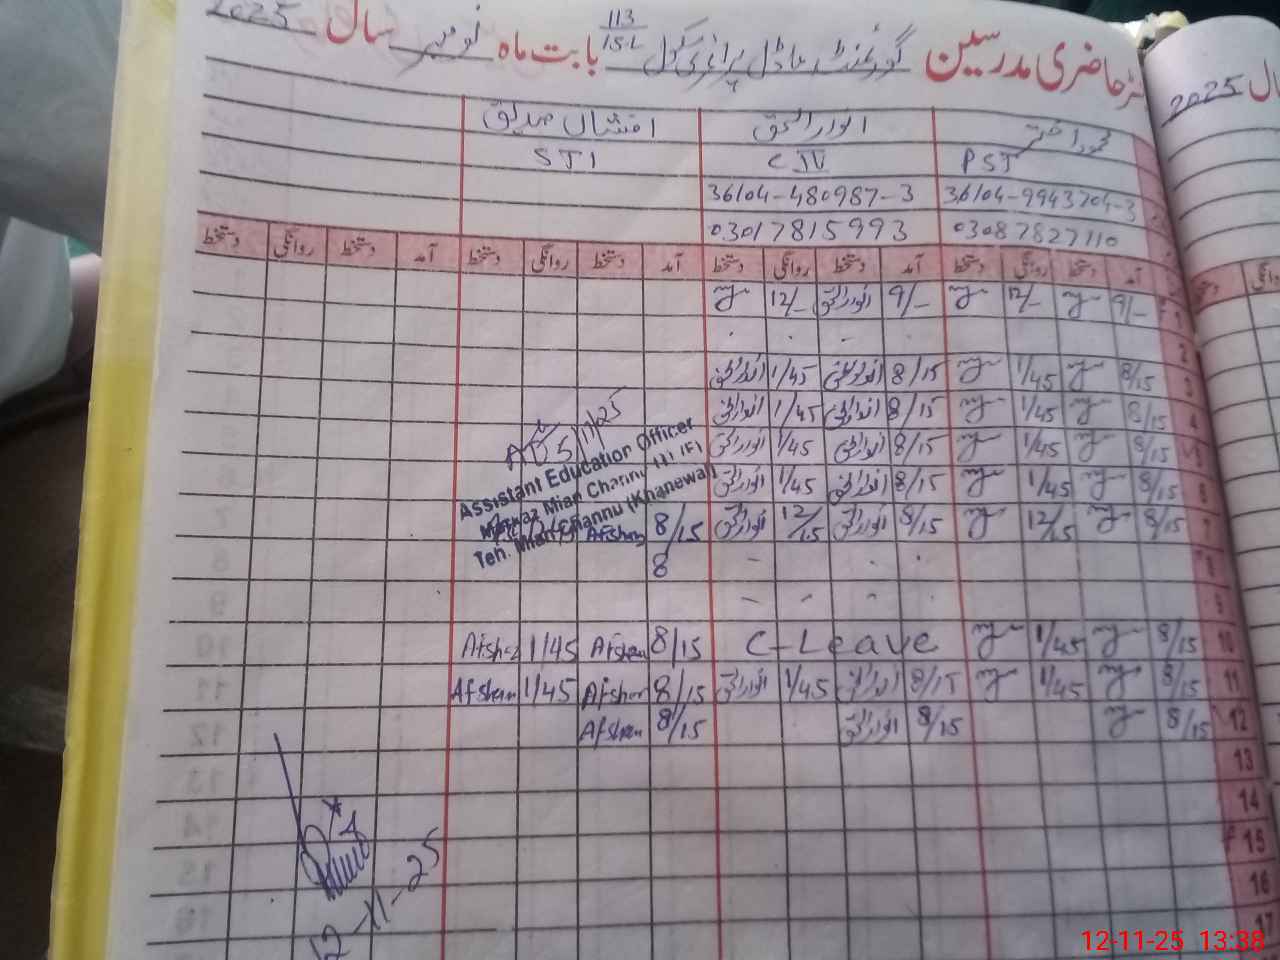 رجسٹر حاضری مدرسین گورنمنٹ ماڈل پرائمری سکول 113/15.L بابت ماہ نومبر سال 2025
سال 2025
انوارالحق افشاں صدیق
PST C IV STI
36104-9943704-3 36104-480987-3
03087827110 03017815993
آمد دستخط روانگی دستخط آمد دستخط روانگی دستخط آمد دستخط روانگی دستخط آمد دستخط روانگی دستخط
1 9/- 12/- 9/- انوارالحق 12/-
2
3 8/15 1/45 8/15 انوارالحق 1/45 انوارالحق
4 8/15 1/45 8/15 انوارالحق 1/45 انوارالحق
5 8/15 1/45 8/15 انوارالحق 1/45 انوارالحق
6 8/15 1/45 8/15 انوارالحق 1/45 انوارالحق
7 8/15 12/15 8/15 انوارالحق 12/15 انوارالحق 8/15 Afshan
8 8
9
10 8/15 1/45 C-Leave 8/15 Afshan 1/45 Afshan
11 8/15 1/45 8/15 انوارالحق 1/45 انوارالحق 8/15 Afshan 1/45 Afshan
12 8/15 8/15 انوارالحق 8/15 Afshan
13
14
15
16
17
5/11/25
Assistant Education Officer
Markaz Mian Channu
Teh. Mian Channu (Khanewal)
12-11-25
12-11-25 13:38